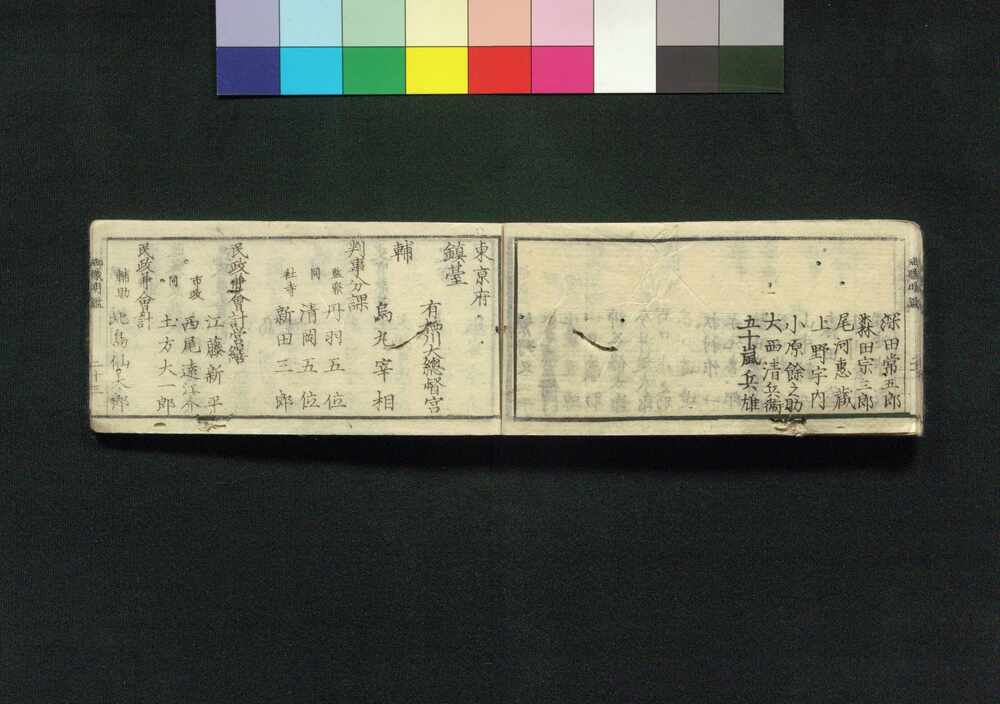 深田常五郎
森田宗三郎
尾河惠藏
上野宇内
小原餘之助
大西清兵衛
五十嵐兵雄
東京府
鎮臺
有栖川大總督宮
輔
烏丸宰相
判事分課
監察 丹羽五位
同 清岡五位
社寺 新田三郎
民政兼會計営繕
江藤新平
市政 西尾遠江介
同 土方大一郎
民政兼會計
輔助 北島仙太郎